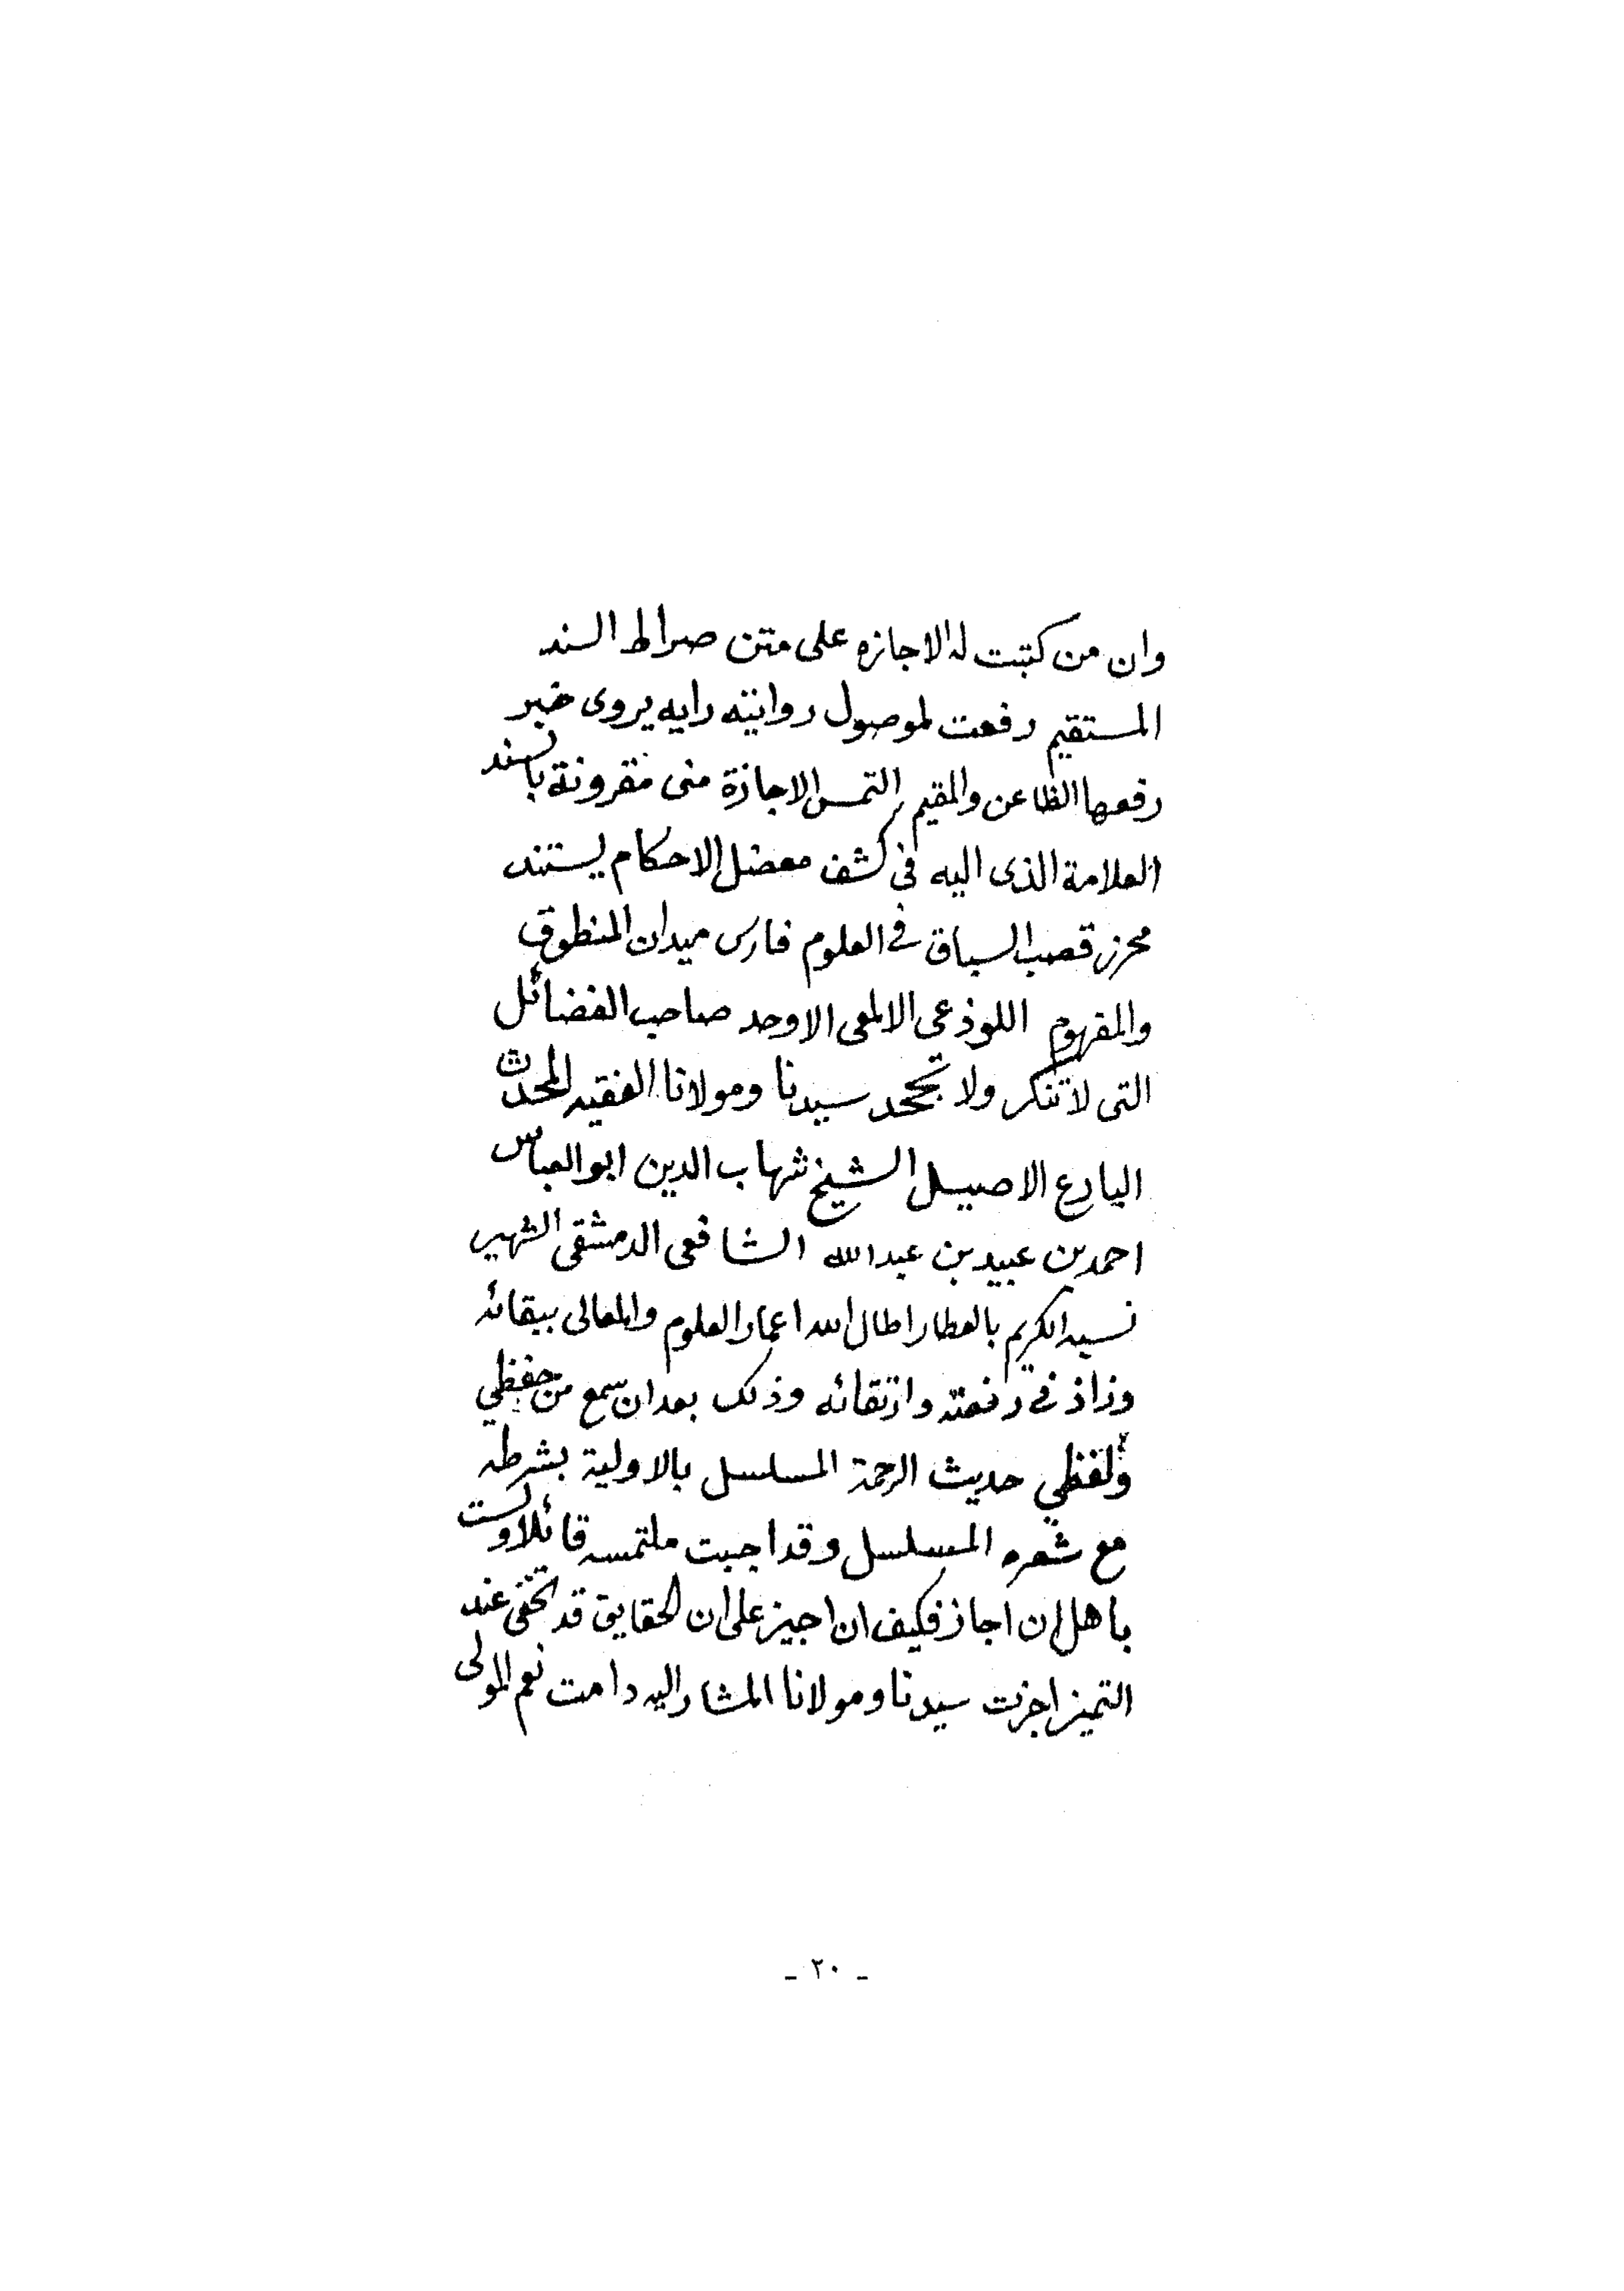 وان من كتبت له الاجازه على متن صراط السند
المستقيم رفعت لموصول روايته رايه يروى خبر
رفعها الظاعن والمقيم التمس الاجازة منى مقرونة بالسند
العلامة الذى اليه فى كشف معضل الاحكام يستند
محرز قصب السباق فى العلوم فارس ميدان المنطوق
والمفهوم اللوذعى الالمعى الاوحد صاحب الفضائل
التى لا تنكر ولا تجحد سيدنا ومولانا الفقيه المحدث
البارع الاصيل الشيخ شهاب الدين ابو العباس
احمد بن عبيد بن عبد الله الشافعى الدمشقى الشهير
نسبه الكريم بالعطار اطال الله اعمار العلوم والمعالى ببقائه
وزاد فى رفعته وارتقائه وذلك بعد ان سمع من حفظي
ولفظي حديث الرحمة المسلسل بالاولية بشرطه
مع شعره المسلسل وقد اجبت ملتمسه قائلا ولست
باهل ان اجاز فكيف ان اجيز على ان الحقايق قد تخفى عند
التميز اجزت سيدنا ومولانا المشار اليه دامت نعم المولى
- ٢٠ -